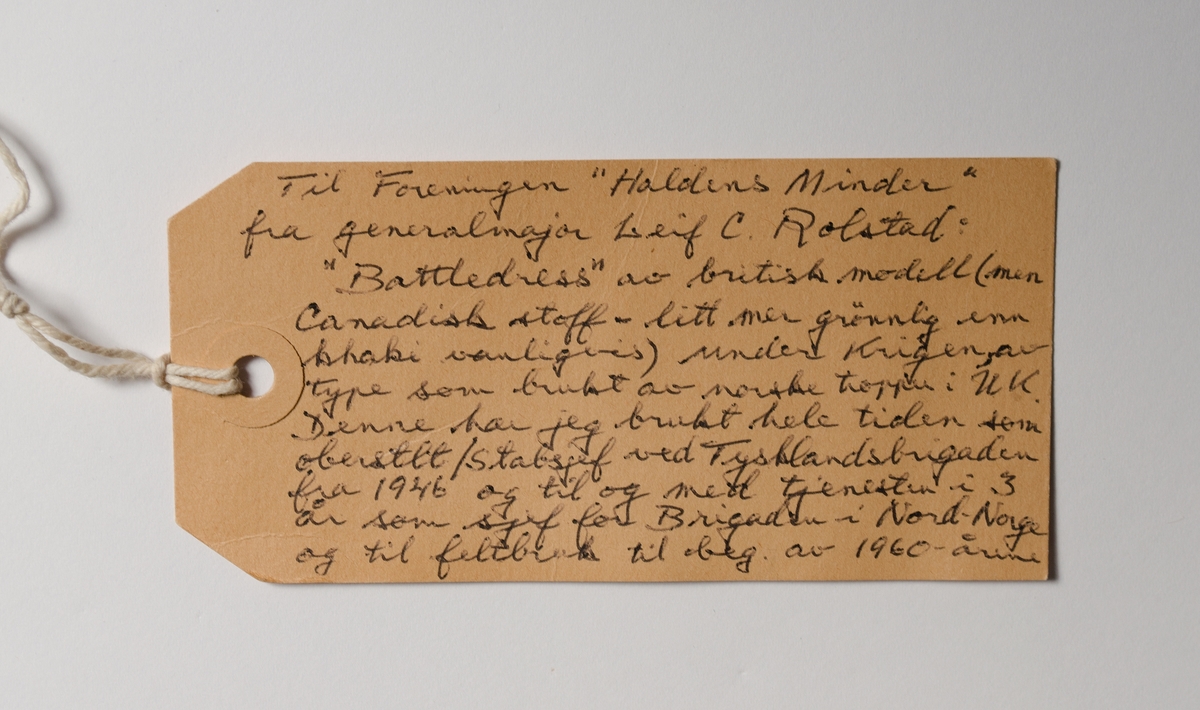 Til Foreningen "Haldens Minder"
fra generalmajor Leif C. Rolstad:
"Battledress" av britisk modell (men
Canadisk stoff - litt mer grönnlig enn
khaki vanligvis) under Krigen, av
type som brukt av norske tropper i UK.
Denne har jeg brukt hele tiden som
oberstlt/Stabsjef ved Tysklandsbrigaden
fra 1946 og til og med tjenesten i 3
år som sjef for Brigaden i Nord-Norge
og til feltbruk til beg. av 1960-årene